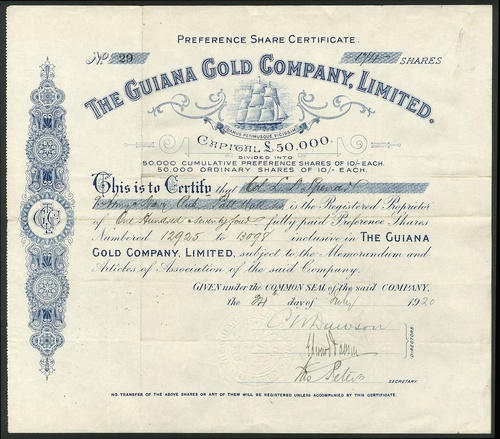 PREFERENCE SHARE CERTIFICATE.
No. 29 174 SHARES
THE GUIANA GOLD COMPANY, LIMITED.
DAMUS PETIMUSQUE VICISSIM
CAPITAL £50,000.
DIVIDED INTO
50,000 CUMULATIVE PREFERENCE SHARES OF 10/- EACH.
50,000 ORDINARY SHARES OF 10/- EACH.
This is to Certify that Col. L. D.
Army & Navy Club, Pall Mall is the Registered Proprietor
of One Hundred & Seventy four fully paid Preference Shares
Numbered 12925 to 13098 inclusive in THE GUIANA
GOLD COMPANY, LIMITED, subject to the Memorandum and
Articles of Association of the said Company.
GIVEN under the COMMON SEAL of the said COMPANY,
the 24th day of July 1920
Dawson
DIRECTORS.
Peters
SECRETARY.
NO TRANSFER OF THE ABOVE SHARES OR ANY OF THEM WILL BE REGISTERED UNLESS ACCOMPANIED BY THIS CERTIFICATE.